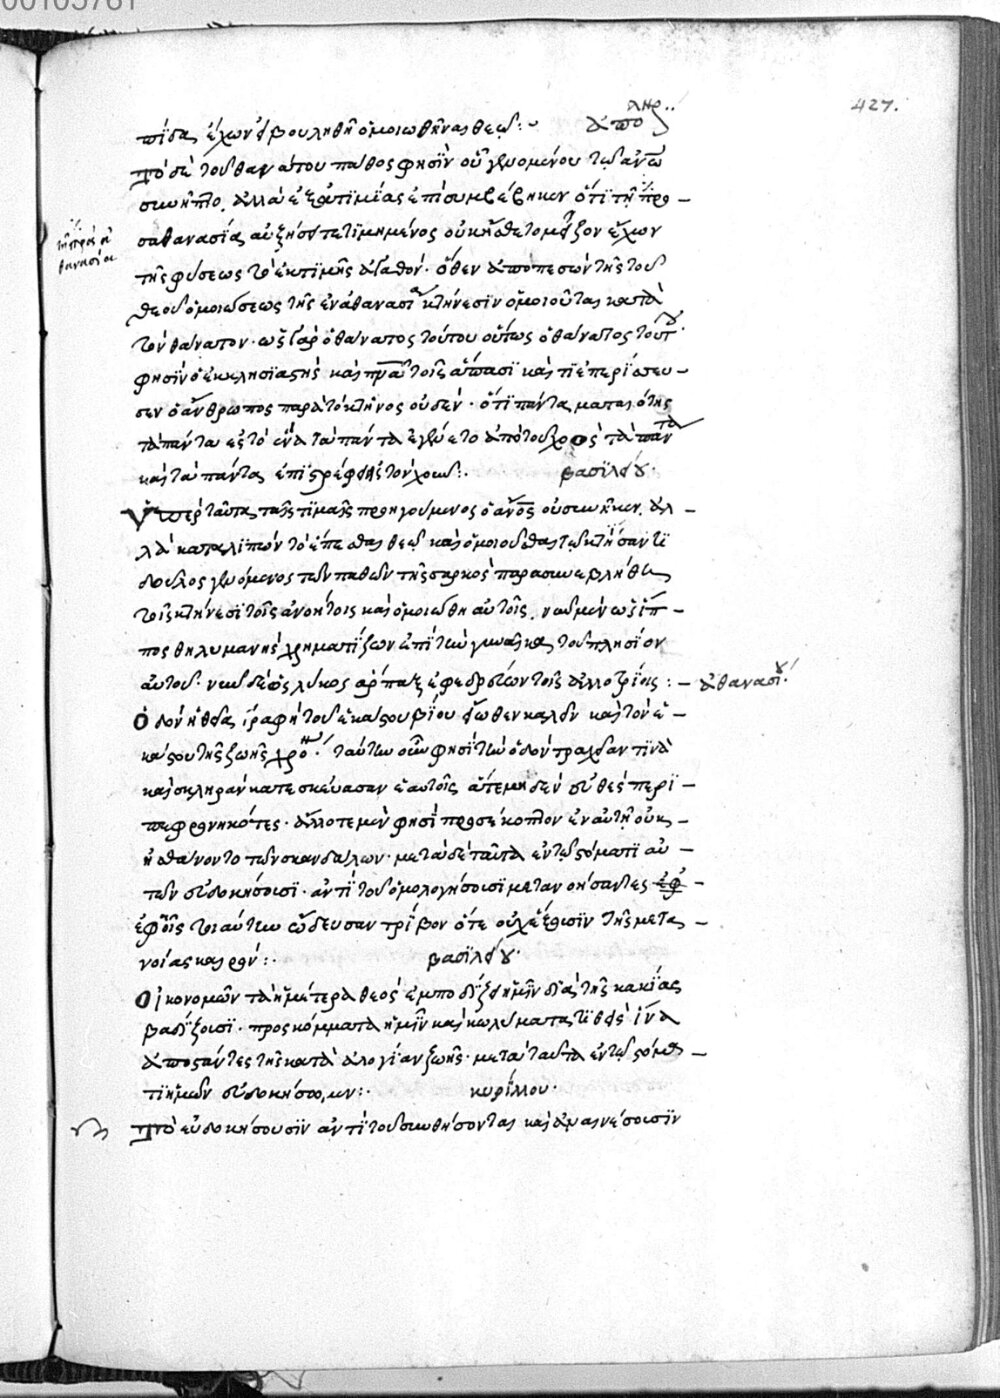 427.
πίδας ἔχων ἐβουλήθη ὁμοιωθῆναι θεῷ:~ ἀπολιρ..
Τὸ δὲ τοῦ θανάτου πάθος φησὶν οὐ γενομένου τῷ ἀνω
συνῆπτο. ἀλλὰ ἐξ ἀτιμίας ἐπισυμβέβηκεν ὅτι τῇ προ
σαθανασίας αὐξήσει τετιμημένος οὐκ ᾔσθετο μεῖζον ἔχων
τῆς πρὸς ἀ
θανασίας
τῆς φύσεως τὸ ἐκ τιμῆς ἀγαθόν. ὅθεν ἀποπεσὼν τῆς τοῦ
θεοῦ ὁμοιώσεως τῆς ἐν ἀθανασίᾳ κτήνεσιν ὁμοιοῦται κατὰ
τὸν θάνατον. ὡς γὰρ ὁ θάνατος τούτου οὕτως ὁ θάνατος τούτου.
φησὶν ὁ ἐκκλησιαστής καὶ πνα τοῖς ἅπασι καὶ τί ἐπερίσσευ
σεν ὁ ἄνθρωπος παρὰ τὸ κτῆνος οὐδέν. ὅτι πάντα ματαιότης
τὰ πάντα εἰς τόπον ἕνα τὰ πάντα ἐγένετο ἀπὸ τοῦ χοὸς τὰ πάντα
καὶ τὰ πάντα ἐπιστρέφει εἰς τὸν χοῦν:. βασιλείου.
Ὑπὲρ ταῦτα ταῖς τιμαῖς προηγούμενος ὁ ἄνος οὐ συνῆκεν. ἀλ
λὰ καταλιπὼν τὸ ἕπεσθαι θεῷ καὶ ὁμοιοῦσθαι τῷ κτήσαντι
δοῦλος γενόμενος τῶν παθῶν τῆς σαρκὸς παρασυνεβλήθη
τοῖς κτήνεσι τοῖς ἀνοήτοις καὶ ὁμοιώθη αὐτοῖς. νῦν μὲν ὡς ἵπ
πος θηλυμανὴς χρηματίζων ἐπὶ τὴν γυναῖκα τοῦ πλησίον
αὐτοῦ. νῦν δὲ ὡς λύκος ἅρπαξ ἐφεδρεύων τοῖς ἀλλοτρίοις:- ἀθανασίου.
Ὁδὸν ἡ θεία γραφὴ τοῦ ἑκάστου βίου εἴωθεν καλεῖν καὶ τὸν ἑ
κάστου τῆς ζωῆς χρό. ταύτην οὖν φησι τὴν ὁδὸν τραχεῖαν τινὰ
καὶ σκληρὰν κατεσκεύασαν ἑαυτοῖς ἅτε μηδὲν εὐθὲς περι
πεφρονηκότες. ἄλλοτε μὲν φησὶ προσέκοπτον ἐν αὐτῇ οὐκ
ᾐσθάνοντο τῶν σκανδάλων. μετὰ δὲ ταῦτα ἐν τῷ στόματι αὐ
τῶν εὐδοκήσουσι. ἀντὶ τοῦ ὁμολογήσουσι μετανοήσαντες ἐφ
ἐφ οἷς τοιαύτην ὥδευσαν τρίβον ὅτε οὐχ ἕξουσιν τῆς μετα
νοίας καιρόν:. βασιλείου.
Οἰκονομῶν τὰ ἡμέτερα θεὸς ἐμποδίζει ἡμῖν διὰ τῆς κακίας
βαδίζουσι. προσκόμματα ἡμῖν καὶ κωλύματα τιθεὶς ἵνα
ἀποστάντες τῆς κατὰ ἀλογίαν ζωῆς. μετὰ ταῦτα ἐν τῷ στόμα
τι ἡμῶν εὐδοκήσωμεν:. κυρίλλου.
Τὸ εὐδοκήσουσιν ἀντὶ τοῦ συνθήσονται καὶ ἐπαινέσουσιν